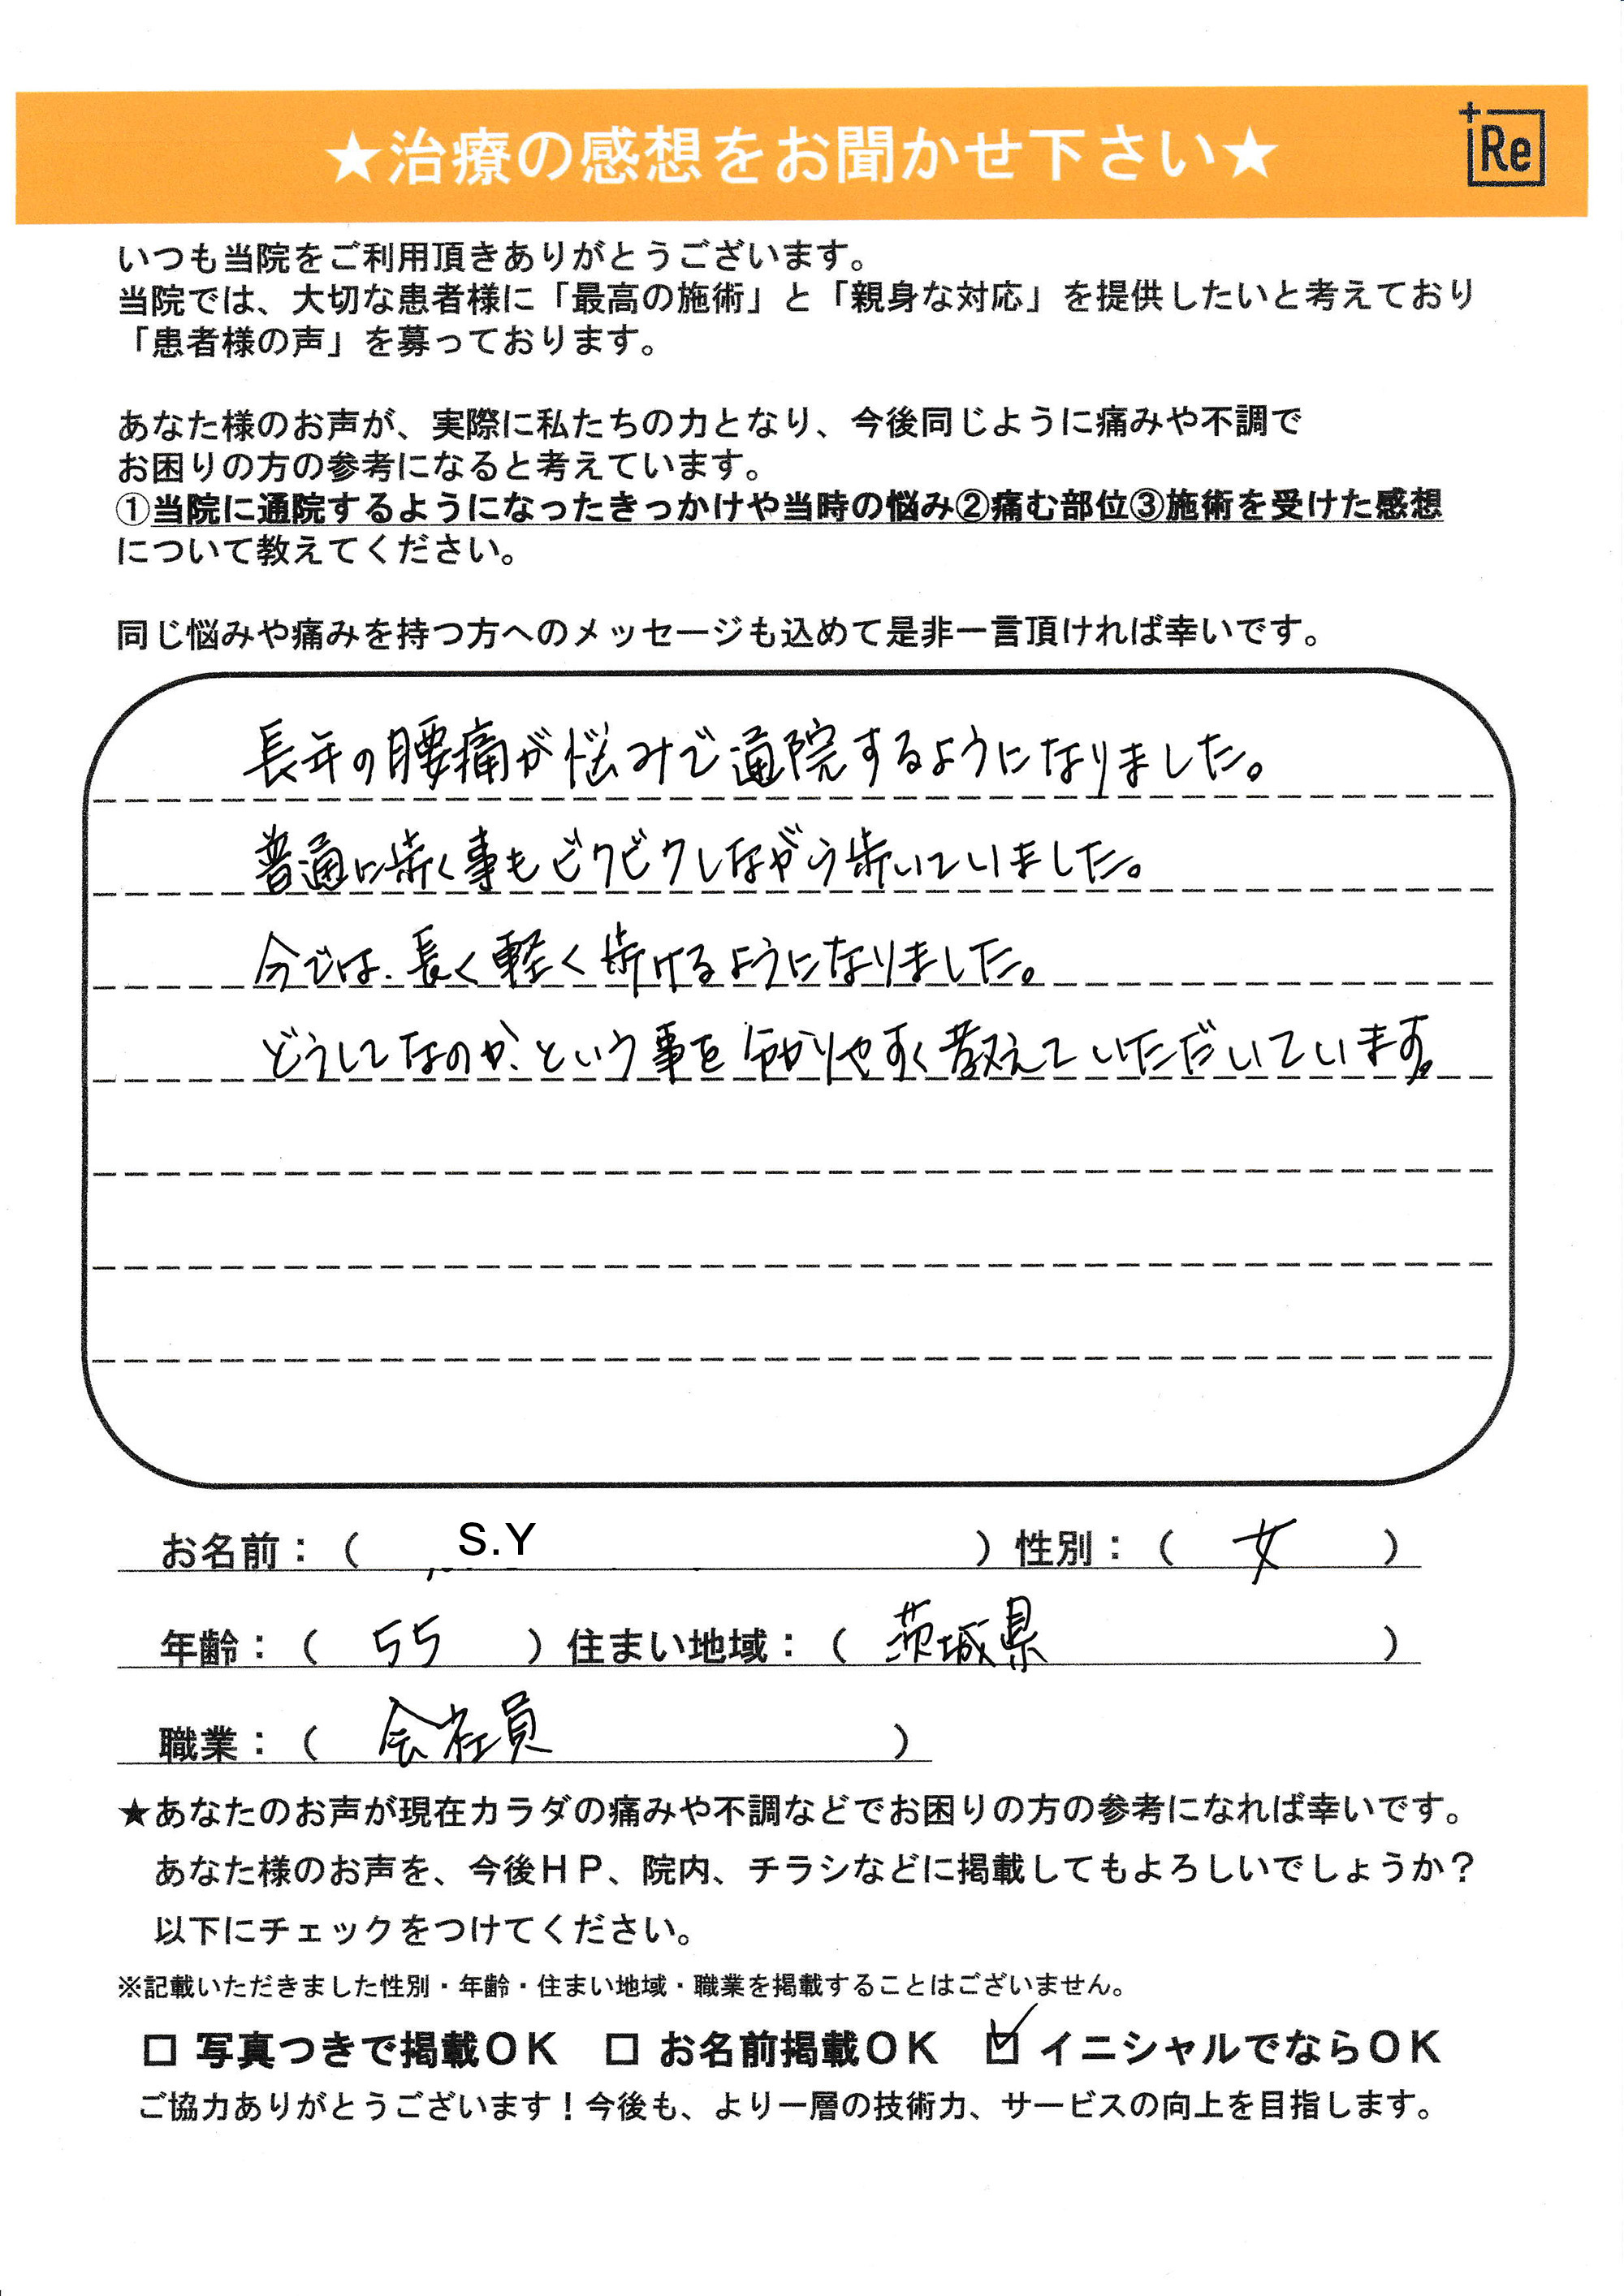 ★治療の感想をお聞かせ下さい★
Re
いつも当院をご利用頂きありがとうございます。
当院では、大切な患者様に「最高の施術」と「親身な対応」を提供したいと考えており
「患者様の声」を募っております。
あなた様のお声が、実際に私たちの力となり、今後同じように痛みや不調で
お困りの方の参考になると考えています。
①当院に通院するようになったきっかけや当時の悩み②痛む部位③施術を受けた感想
について教えてください。
同じ悩みや痛みを持つ方へのメッセージも込めて是非一言頂ければ幸いです。
長年の腰痛が悩みで通院するようになりました。
普通に歩く事もビクビクしながら歩いていました。
今では、長く軽く歩けるようになりました。
どうしてなのか、という事を分かりやすく教えていただいています。
お名前：（ S.Y ）性別：（ 女 ）
年齢：（ 55 ）住まい地域：（ 茨城県 ）
職業：（ 会社員 ）
★あなたのお声が現在カラダの痛みや不調などでお困りの方の参考になれば幸いです。
あなた様のお声を、今後ＨＰ、院内、チラシなどに掲載してもよろしいでしょうか？
以下にチェックをつけてください。
※記載いただきました性別・年齢・住まい地域・職業を掲載することはございません。
□ 写真つきで掲載ＯＫ □ お名前掲載ＯＫ ☑ イニシャルでならＯＫ
ご協力ありがとうございます！今後も、より一層の技術力、サービスの向上を目指します。